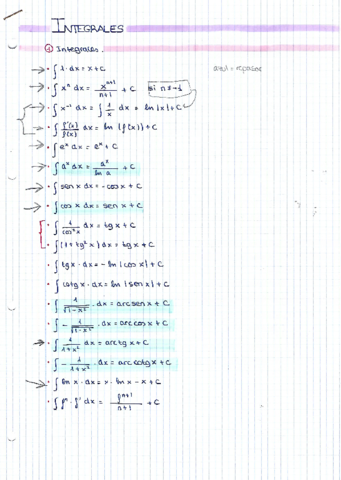 INTEGRALES
① Integrales.
→ • ∫ 1 · dx = x + C
→ • ∫ xⁿ dx = xⁿ⁺¹/(n+1) + C   si n ≠ -1
→ • ∫ x⁻¹ dx = ∫ 1/x dx = ln |x| + C
→ • ∫ f'(x)/f(x) dx = ln |f(x)| + C
→ • ∫ eˣ dx = eˣ + C
→ • ∫ aˣ dx = aˣ/ln a + C
→ • ∫ sen x dx = -cos x + C
→ • ∫ cos x dx = sen x + C
• ∫ 1/cos²x dx = tg x + C
• ∫ (1 + tg²x) dx = tg x + C
• ∫ tg x · dx = -ln |cos x| + C
• ∫ cotg x · dx = ln |sen x| + C
• ∫ 1/√(1-x²) · dx = arc sen x + C
• ∫ - 1/√(1-x²) · dx = arc cos x + C
→ • ∫ 1/(1+x²) dx = arc tg x + C
• ∫ - 1/(1+x²) · dx = arc cotg x + C
→ • ∫ ln x · dx = x · ln x - x + C
• ∫ fⁿ · f' dx = fⁿ⁺¹/(n+1) + C